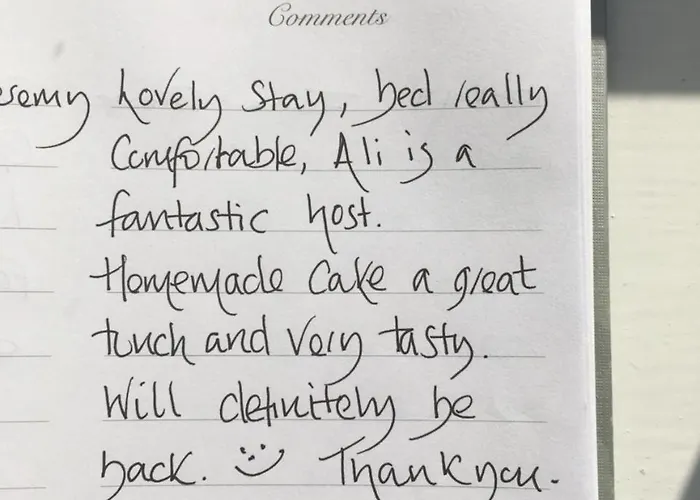 Comments
Lovely Stay, bed really
Comfortable, Ali is a
fantastic host.
Homemade Cake a great
touch and Very tasty.
Will definitely be
back. Thankyou.